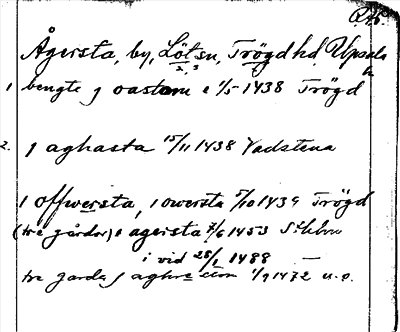 Ågersta, by, Löt sn, Trögd hd, Upsala
1 bengte j oastom e 1/5 1438 Trögd
2. j aghasta 15/11 1438 Vadstena
i offwersta, i owersta 5/10 1439 Trögd
(tre gårdar) i agersta 7/6 1453 Sthlm
i vid 28/1 1488
tre garda j 1/9 1472 u.o.